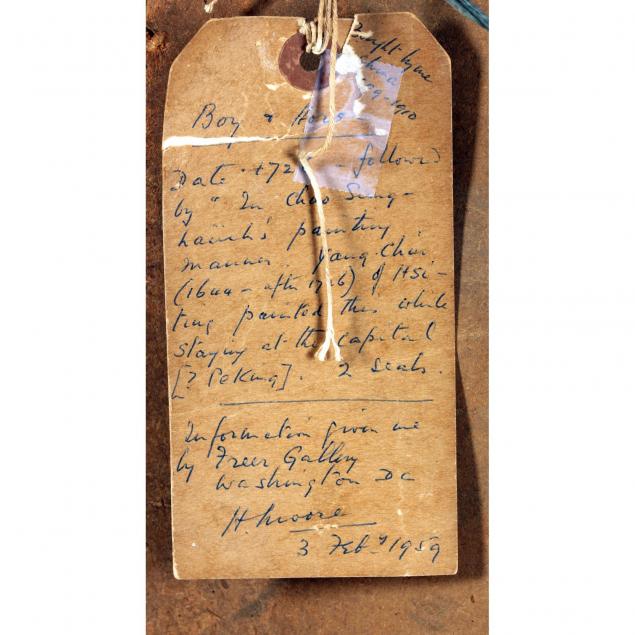 Bought by me
China
1909-1910
Boy & Horse
Date 172 - followed
by "In Chao Sung-
hsüeh's painting
manner. Yang Chin
(1644 - after 1726) of Hsi-
ting painted this while
staying at the capital
[? Peking]. 2 seals.
Information given me
by Freer Gallery
Washington DC
H. Moore
3 Feby 1959